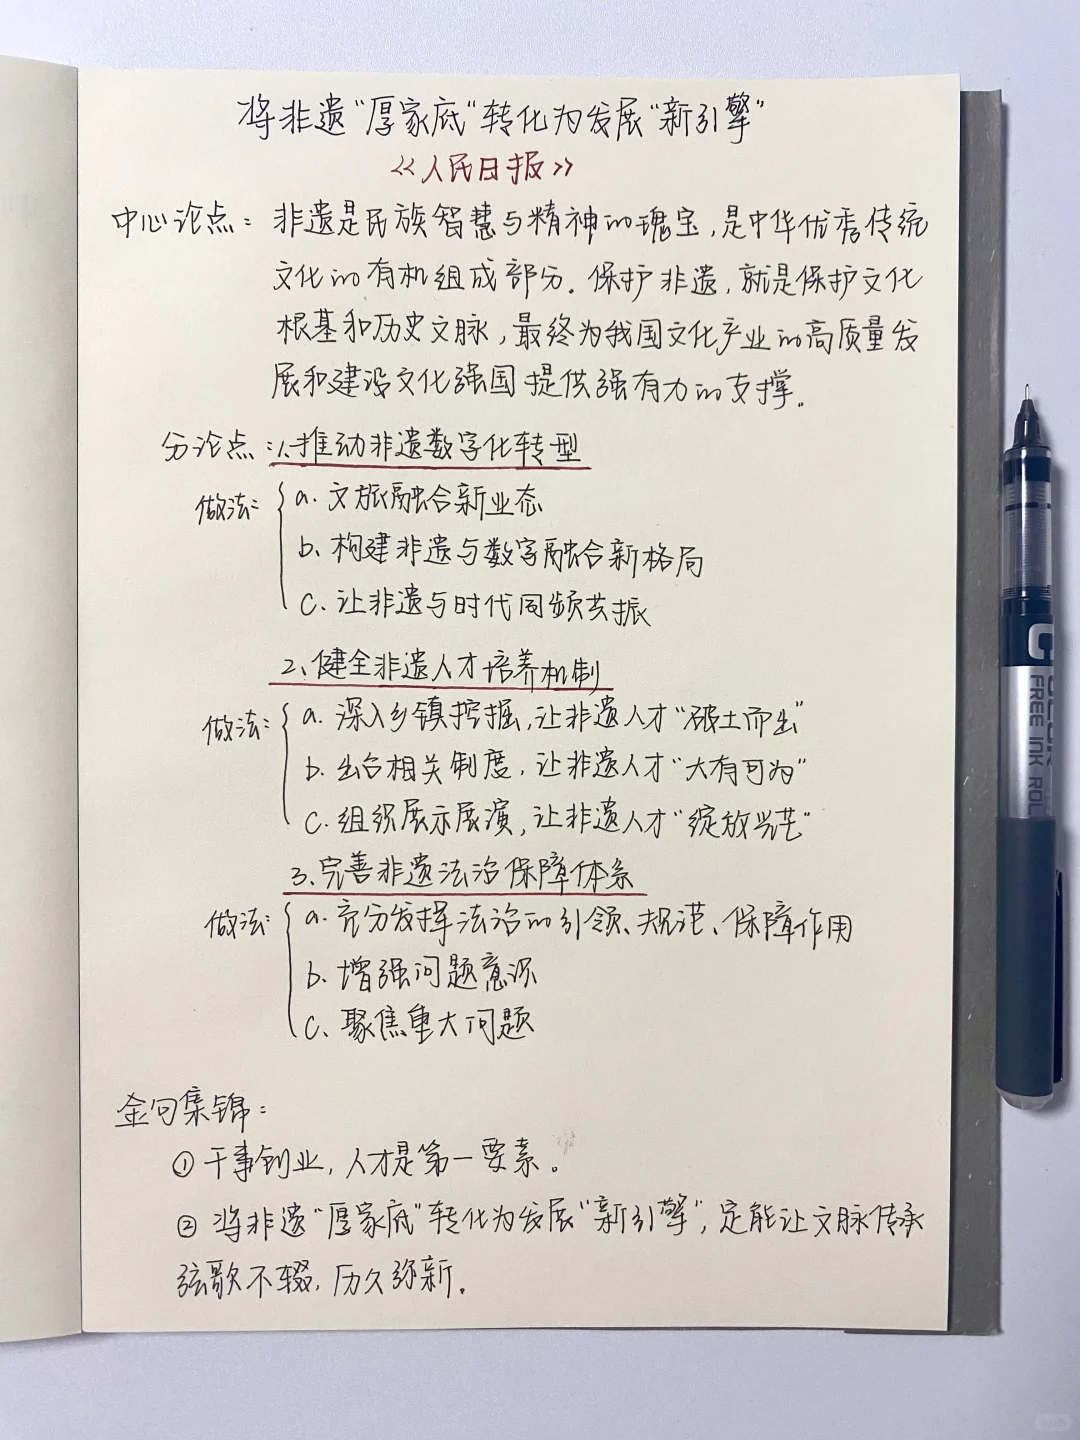 将非遗“厚家底”转化为发展“新引擎”
《人民日报》
中心论点：非遗是民族智慧与精神的瑰宝，是中华优秀传统
文化的有机组成部分。保护非遗，就是保护文化
根基和历史文脉，最终为我国文化产业的高质量发
展和建设文化强国提供强有力的支撑。
分论点：1.推动非遗数字化转型
做法：
a. 文旅融合新业态
b. 构建非遗与数字融合新格局
c. 让非遗与时代同频共振
2、健全非遗人才培养机制
做法：
a. 深入乡镇挖掘，让非遗人才“破土而出”
b. 出台相关制度，让非遗人才“大有可为”
c. 组织展示展演，让非遗人才“绽放光芒”
3、完善非遗法治保障体系
做法：
a. 充分发挥法治的引领、规范、保障作用
b. 增强问题意识
c. 聚焦重大问题
金句集锦：
① 干事创业，人才是第一要素。
② 将非遗“厚家底”转化为发展“新引擎”，定能让文脉传承
弦歌不辍，历久弥新。
C
FREE INK ROL